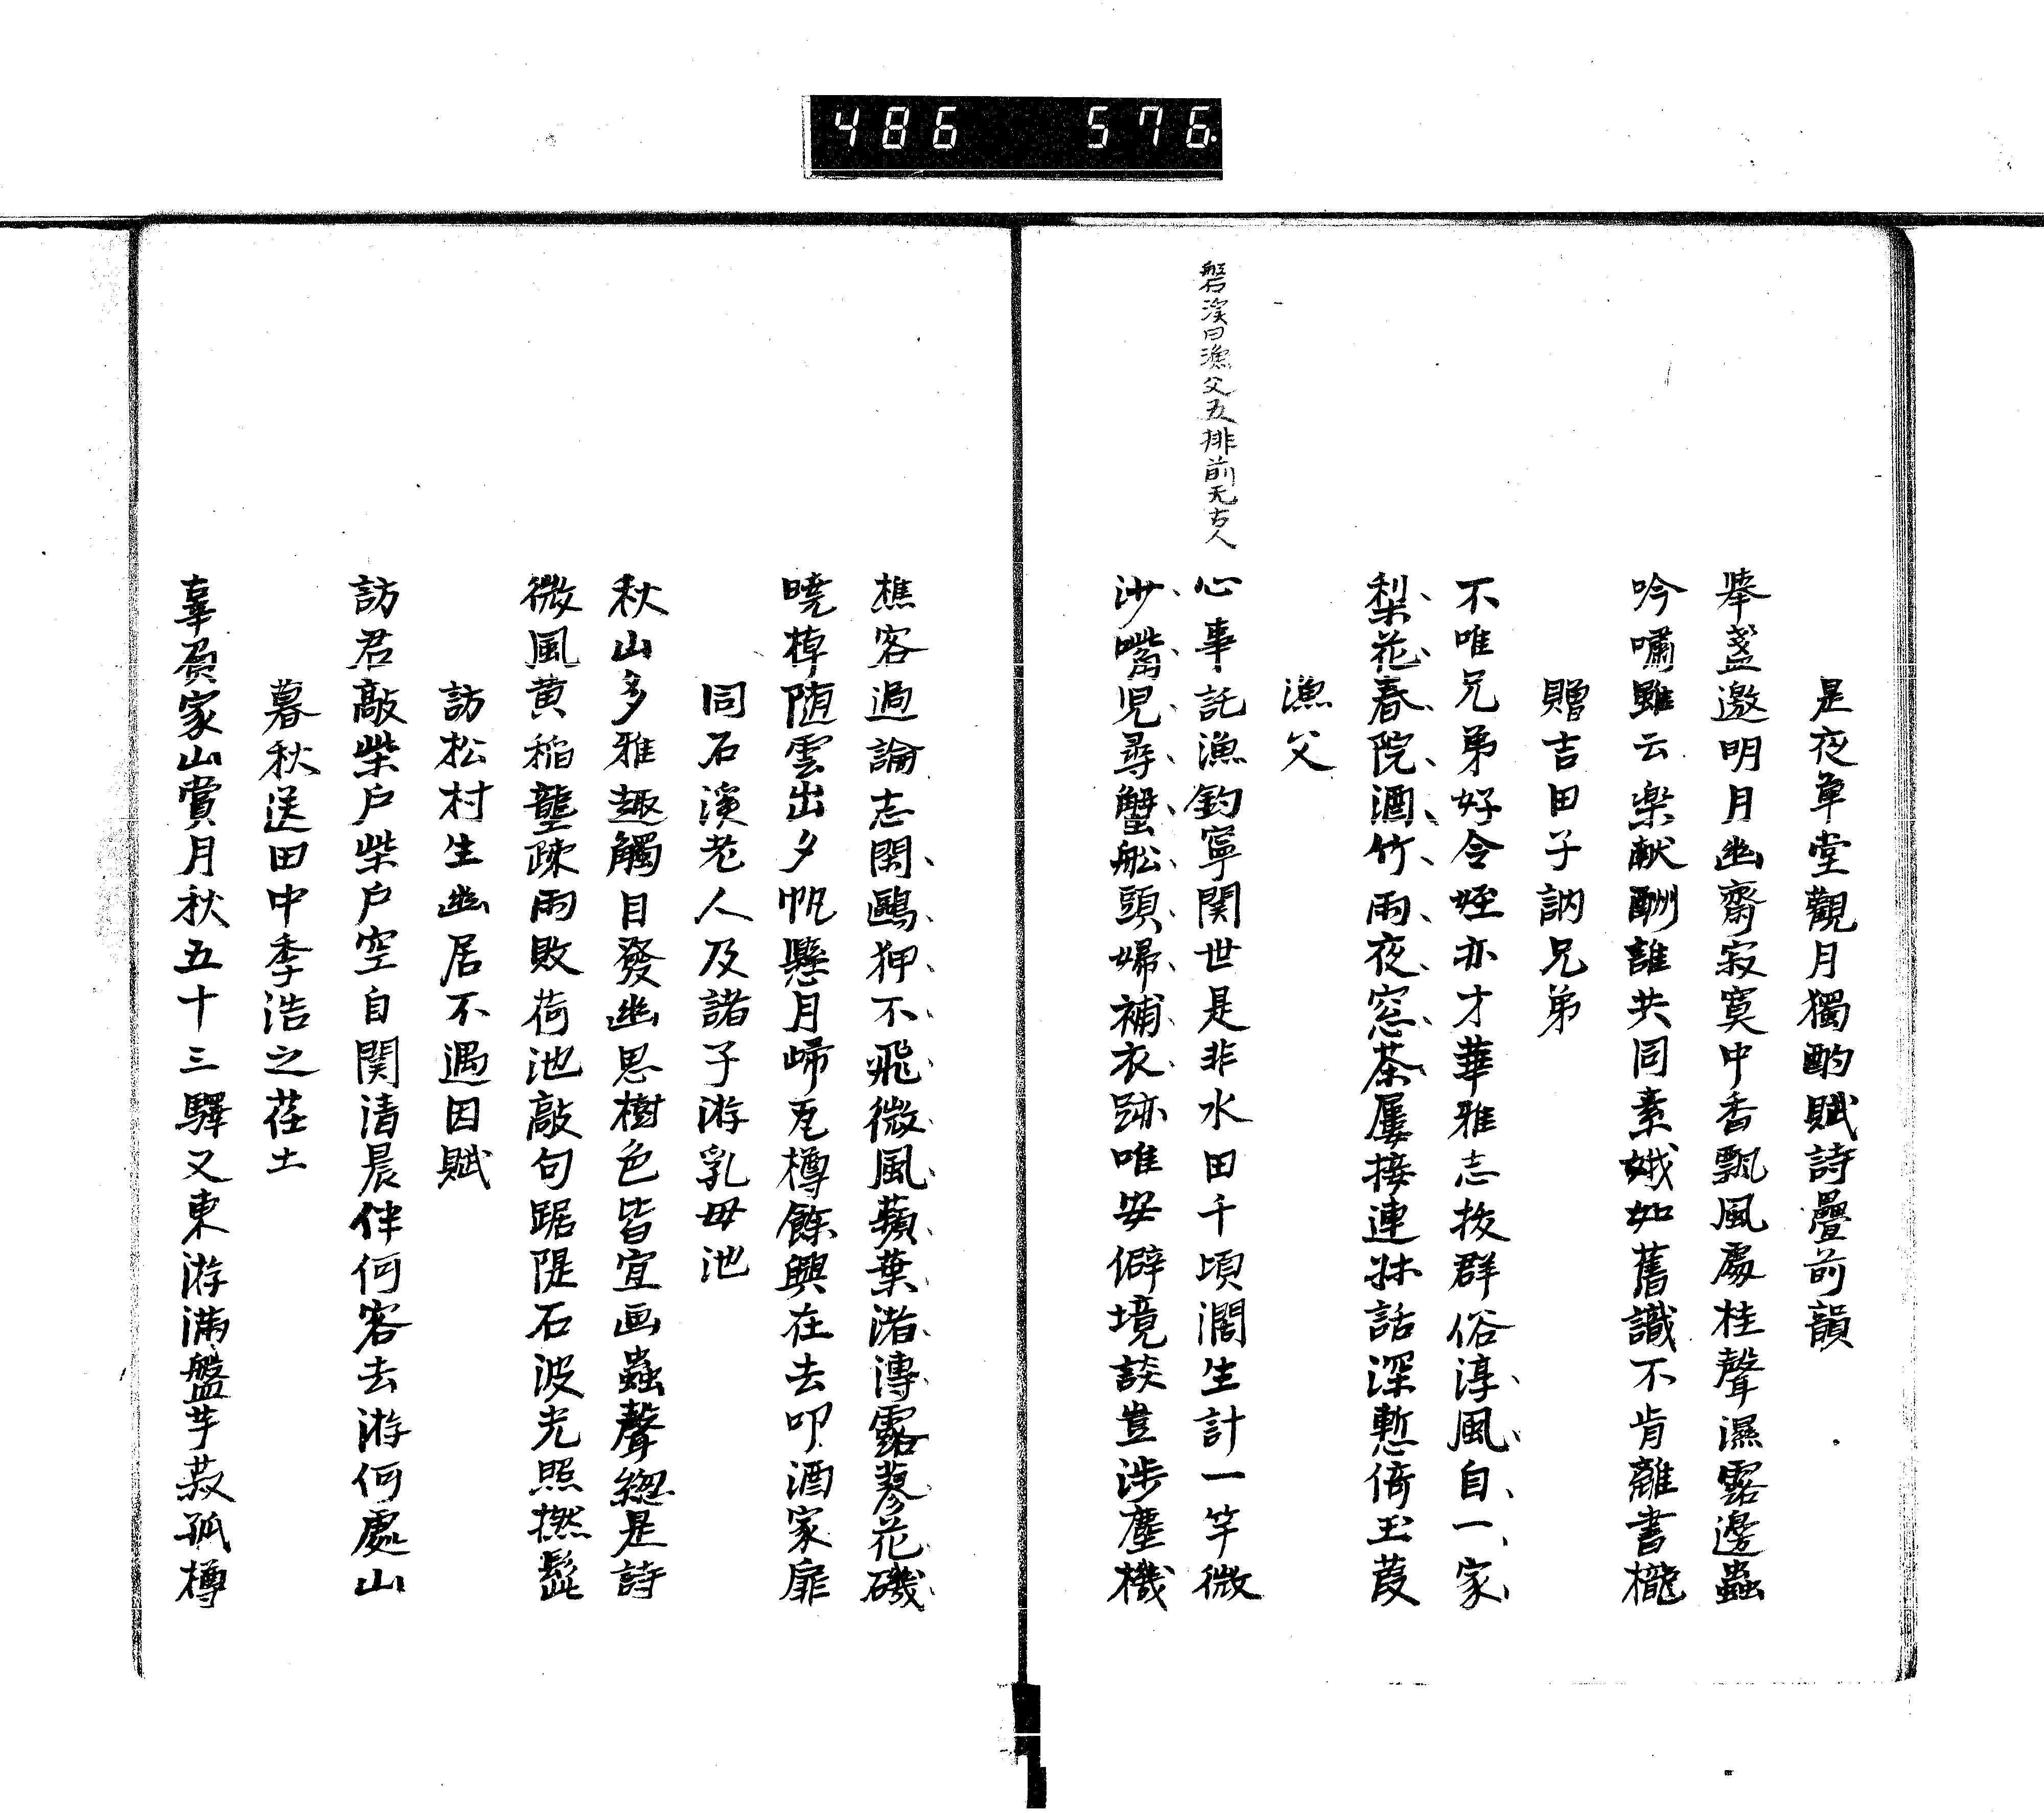 486 576
是夜草堂觀月獨酌賦詩疊前韻
挙盞邀明月幽齋寂寞中香飄風處桂聲濕露邊蟲
吟嘯雖云楽献酬誰共同素娥如舊識不肯離書櫳
贈吉田子訥兄弟
不唯兄弟好令姪亦才華雅志抜群俗淳風自一家
梨花春院酒竹雨夜窓茶屢接連牀話深慙倚玉葭
漁父
磐渓曰漁父五排前无古人
心事託漁釣寧関世是非水田千頃濶生計一竿微
沙嘴児尋蟹舩頭婦補衣跡唯安僻境談豈渉塵機
樵客過論志閑鷗狎不飛微風蘋葉渚漙露蓼花磯
暁棹随雲出夕帆懸月帰瓦樽餘興在去叩酒家扉
同石渓老人及諸子游乳母池
秋山多雅趣觸目發幽思樹色皆宜画蟲聲総是詩
微風黄稲壟疎雨敗荷池敲句踞隄石波光照撚髭
訪松村生幽居不遇因賦
訪君敲柴戸柴戸空自関清晨伴何客去游何處山
暮秋送田中季浩之荏土
辜負家山賞月秋五十三驛又東游満盤芋菽孤樽